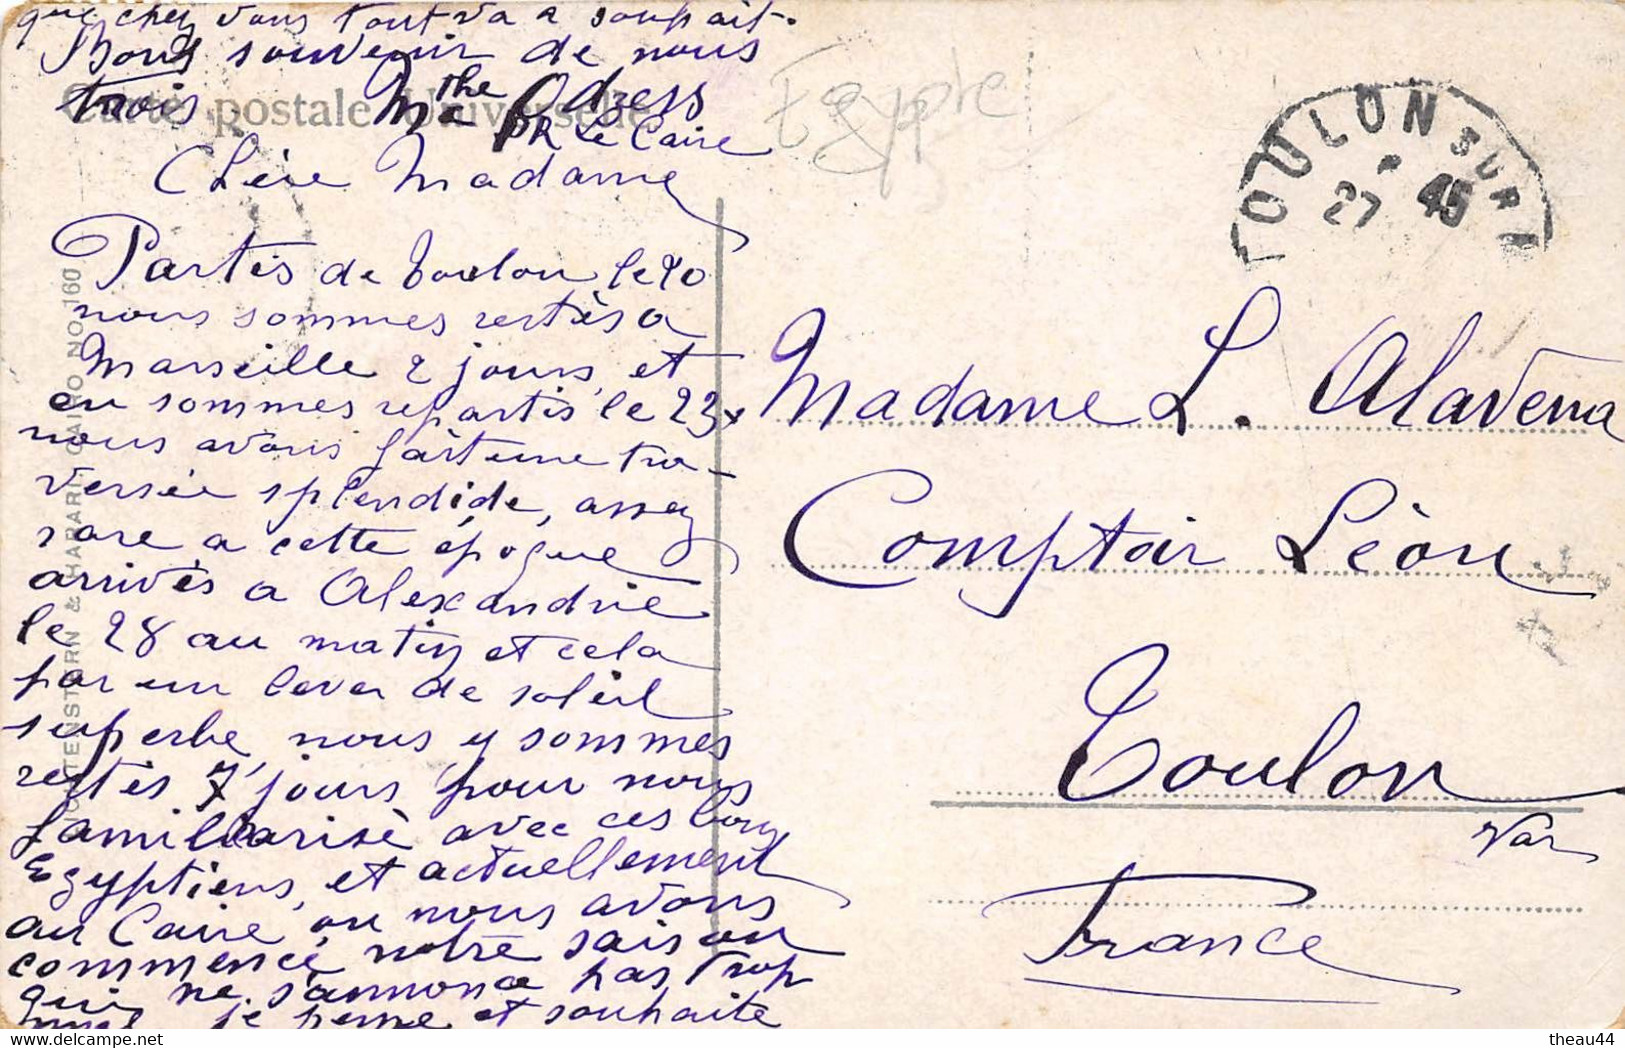 que chez vous tout va a souhait.
Bons souvenir de nous
trois
Carte postale Universelle
PR Le Caire
Chère Madame
Partis de Toulon le 20
nous sommes restès a
Marseille 2 jours, et
en sommes repartis le 23
nous avons fait une tra-
versée splendide, assez
rare a cette époque
arrivès a Alexandrie
le 28 au matin et cela
par un lever de soleil
superbe, nous y sommes
restès 7 jours pour nous
familiarisè avec ces bons
Egyptiens, et actuellement
au Caire, ou nous avons
commencé notre saison
qui ne s'annonce pas trop
mal je pense et souhaite
LICHTENSTERN & HARARI, CAIRO NO. 160
Egypte
TOULON SUR
27 45
Madame L. Alavena
Comptoir Lèon
Toulon
Var
France
theau44